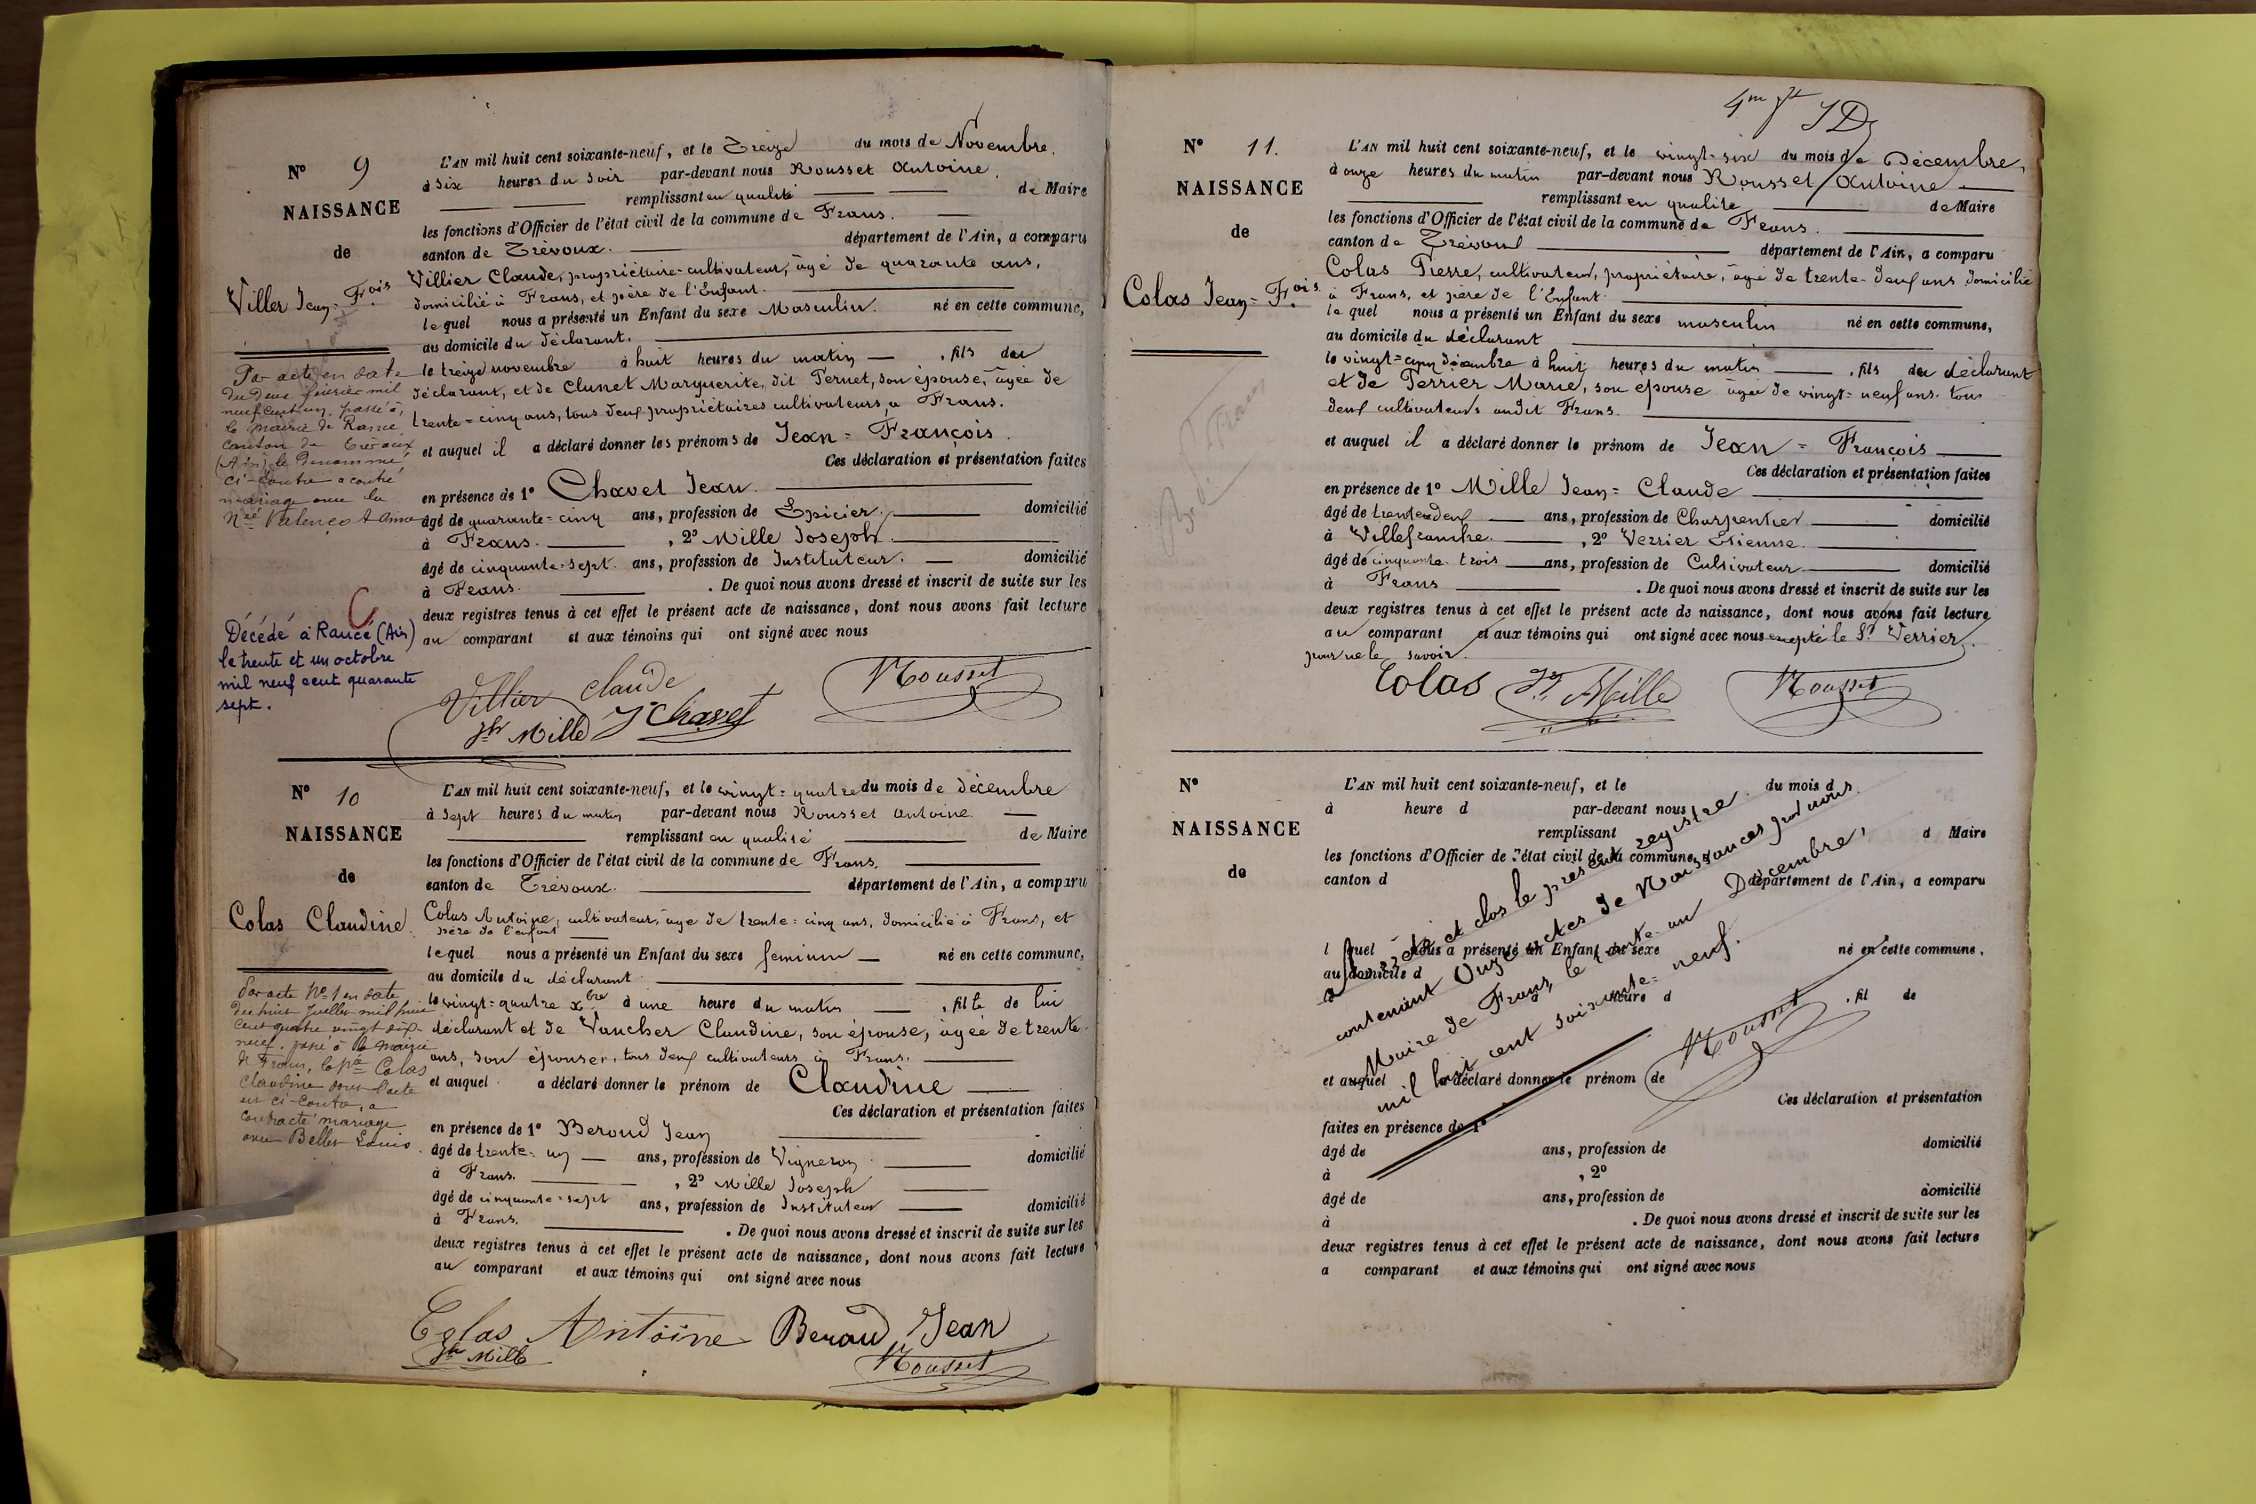 N° 9
NAISSANCE
de
Viller Jean-F.ois
L'AN mil huit cent soixante-neuf, et le Treize du mois de Novembre,
à six heures du soir par-devant nous Rousset Antoine,
remplissant en qualité de Maire
les fonctions d'Officier de l'état civil de la commune de Frans.
canton de Trévoux. département de l'Ain, a comparu
Villier Claude, propriétaire-cultivateur, âgé de quarante ans,
domicilié à Frans, et père de l'Enfant.
lequel nous a présenté un Enfant du sexe Masculin. né en cette commune,
au domicile du déclarant.
le treize novembre à huit heures du matin , fils du
déclarant, et de Clunet Marguerite, dit Pernet, son épouse, âgée de
trente-cinq ans, tous deux propriétaires cultivateurs, à Frans.
et auquel il a déclaré donner les prénoms de Jean-François.
Ces déclaration et présentation faites
en présence de 1° Chavet Jean.
âgé de quarante-cinq ans, profession de Epicier. domicilié
à Frans. , 2° Mille Joseph.
âgé de cinquante-sept ans, profession de Instituteur. domicilié
à Frans. . De quoi nous avons dressé et inscrit de suite sur les
deux registres tenus à cet effet le présent acte de naissance, dont nous avons fait lecture
au comparant et aux témoins qui ont signé avec nous
Villier Claude Rousset
Jh Mille J Chavet
Par acte en date
du deux février mil
neuf cent un, passé à
la mairie de Rancé
canton de Trévoux
(Ain), le dénommé
ci-contre a contracté
mariage avec la
Née Valençot Anna
C
Décédé à Rancé (Ain)
le trente et un octobre
mil neuf cent quarante
sept.
N° 10
NAISSANCE
de
Colas Claudine.
L'AN mil huit cent soixante-neuf, et le vingt-quatre du mois de décembre
à sept heures du matin par-devant nous Rousset Antoine
remplissant en qualité de Maire
les fonctions d'Officier de l'état civil de la commune de Frans.
canton de Trévoux. département de l'Ain, a comparu
Colas Antoine, cultivateur, âgé de trente-cinq ans, domicilié à Frans, et
père de l'enfant
lequel nous a présenté un Enfant du sexe feminin né en cette commune,
au domicile du déclarant
le vingt-quatre xbre à une heure du matin , fille de lui
déclarant et de Vancher Claudine, son épouse, âgée de trente
ans, son épouse, tous deux cultivateurs à Frans.
et auquel a déclaré donner le prénom de Claudine
Ces déclaration et présentation faites
en présence de 1° Beroud Jean
âgé de trente-un ans, profession de Vigneron domicilié
à Frans. , 2° Mille Joseph
âgé de cinquante-sept ans, profession de Instituteur domicilié
à Frans. . De quoi nous avons dressé et inscrit de suite sur les
deux registres tenus à cet effet le présent acte de naissance, dont nous avons fait lecture
au comparant et aux témoins qui ont signé avec nous
Colas Antoine Beroud Jean
Jh Mille Rousset
Par acte N° 1 en date
du huit Juillet mil huit
cent quatre vingt dix-
neuf, passé à la mairie
de Frans, la Née Colas
Claudine dont l'acte
est ci-contre, a
contracté mariage
avec Bellet Louis.
N° 11.
NAISSANCE
de
Colas Jean-F.ois
L'AN mil huit cent soixante-neuf, et le vingt-six du mois de Décembre,
à onze heures du matin par-devant nous Rousset Antoine
remplissant en qualité de Maire
les fonctions d'Officier de l'état civil de la commune de Frans.
canton de Trévoux département de l'Ain, a comparu
Colas Pierre, cultivateur, propriétaire, âgé de trente-deux ans domicilié
à Frans, et père de l'Enfant.
lequel nous a présenté un Enfant du sexe masculin né en cette commune,
au domicile du déclarant
le vingt-cinq décembre à huit heures du matin , fils du déclarant
et de Perrier Marie, son épouse âgée de vingt-neuf ans tous
deux cultivateurs audit Frans.
et auquel il a déclaré donner le prénom de Jean-François
Ces déclaration et présentation faites
en présence de 1° Mille Jean-Claude
âgé de trente-deux ans, profession de Charpentier domicilié
à Villefranche. , 2° Verrier Etienne.
âgé de cinquante-trois ans, profession de Cultivateur domicilié
à Frans . De quoi nous avons dressé et inscrit de suite sur les
deux registres tenus à cet effet le présent acte de naissance, dont nous avons fait lecture
au comparant et aux témoins qui ont signé avec nous excepté le Sr Verrier,
pour ne le savoir.
Colas Mille Rousset
N°
NAISSANCE
de
L'AN mil huit cent soixante-neuf, et le du mois d
à heure d par-devant nous
remplissant d Maire
les fonctions d'Officier de l'état civil de la commune d
canton d département de l'Ain, a comparu
l quel nous a présenté un Enfant du sexe né en cette commune,
au domicile d
l heure d , fil de
et auquel a déclaré donner le prénom de
Ces déclaration et présentation
faites en présence de 1°
âgé de ans, profession de domicilié
à , 2°
âgé de ans, profession de domicilié
à . De quoi nous avons dressé et inscrit de suite sur les
deux registres tenus à cet effet le présent acte de naissance, dont nous avons fait lecture
a comparant et aux témoins qui ont signé avec nous
Arrêté et clos le présent registre
contenant Onze actes de Naissances par nous
Maire de Frans, le trente-un Décembre,
mil huit cent soixante-neuf.
Rousset